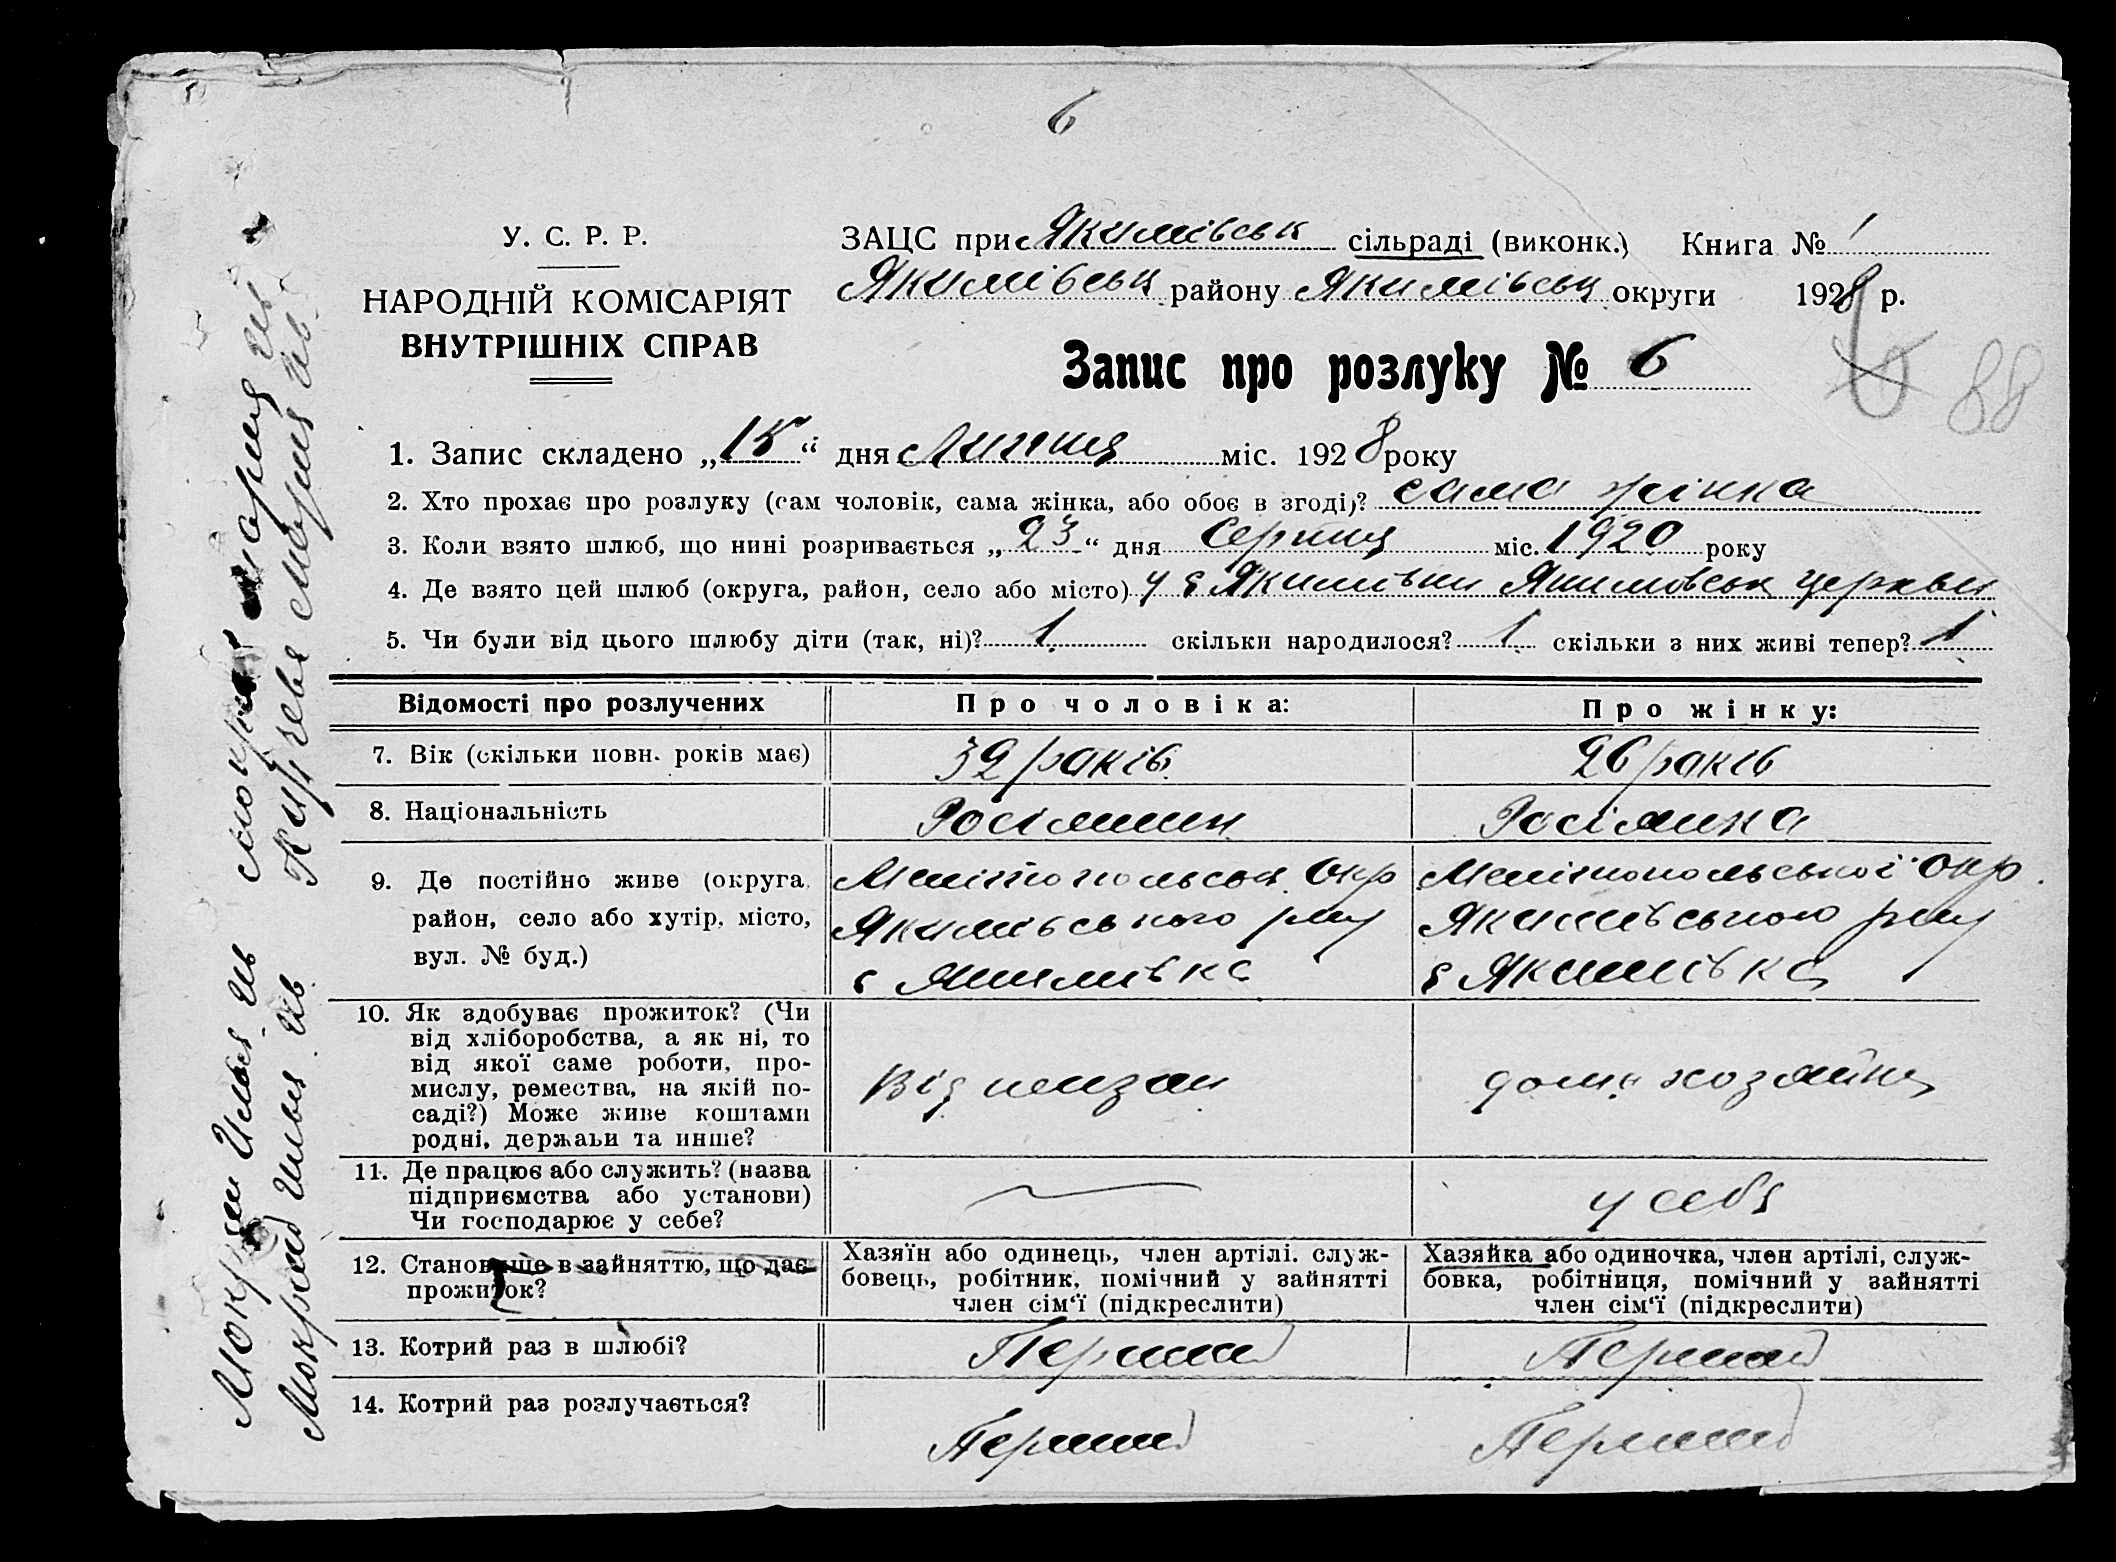 6
У. С. Р. Р.
НАРОДНІЙ КОМІСАРІЯТ
ВНУТРІШНІХ СПРАВ
ЗАЦС при Якимівськ сільраді (виконк.) Книга № 1
Якимівськ району Якимівськ округи 1928 р.
Запис про розлуку № 6
88
1. Запис складено „15“ дня Липця міс. 1928 року
2. Хто прохає про розлуку (сам чоловік, сама жінка, або обоє в згоді)? сама жінка
3. Коли взято шлюб, що нині розривається „23“ дня Серпня міс. 1920 року
4. Де взято цей шлюб (округа, район, село або місто) у с Якимівки Якимовськ церкви
5. Чи були від цього шлюбу діти (так, ні)? 1 скільки народилося? 1 скільки з них живі тепер? 1
Відомості про розлучених Про чоловіка: Про жінку:
7. Вік (скільки повн. років має) 32 років 26 років
8. Національність Росіянин Росіянка
9. Де постійно живе (округа, район, село або хутір, місто, вул. № буд.)
Мелітопольськ Окр
Якимівського р-ну
с Якимівка
Мелітопольської Окр.
Якимівського р-ну
с Якимівка
10. Як здобуває прожиток? (Чи
від хліборобства, а як ні, то
від якої саме роботи, про-
мислу, ремества, на якій по-
саді?) Може живе коштами
родні, держави та инше?
Від
дома хозяйка
11. Де працює або служить? (назва
підприємства або установи)
Чи господарює у себе?
у себя
12. Становище в зайняттю, що дає
прожиток?
Хазяїн або одинець, член артілі, служ-
бовець, робітник, помічний у зайнятті
член сім‘ї (підкреслити)
Хазяйка або одиночка, член артілі, служ-
бовка, робітниця, помічний у зайнятті
член сім‘ї (підкреслити)
13. Котрий раз в шлюбі? Перший Перший
14. Котрий раз розлучається? Перший Перший
Мокрин Илья Ив Мария Ив
Мокрин Илья Ив Мария Ив.